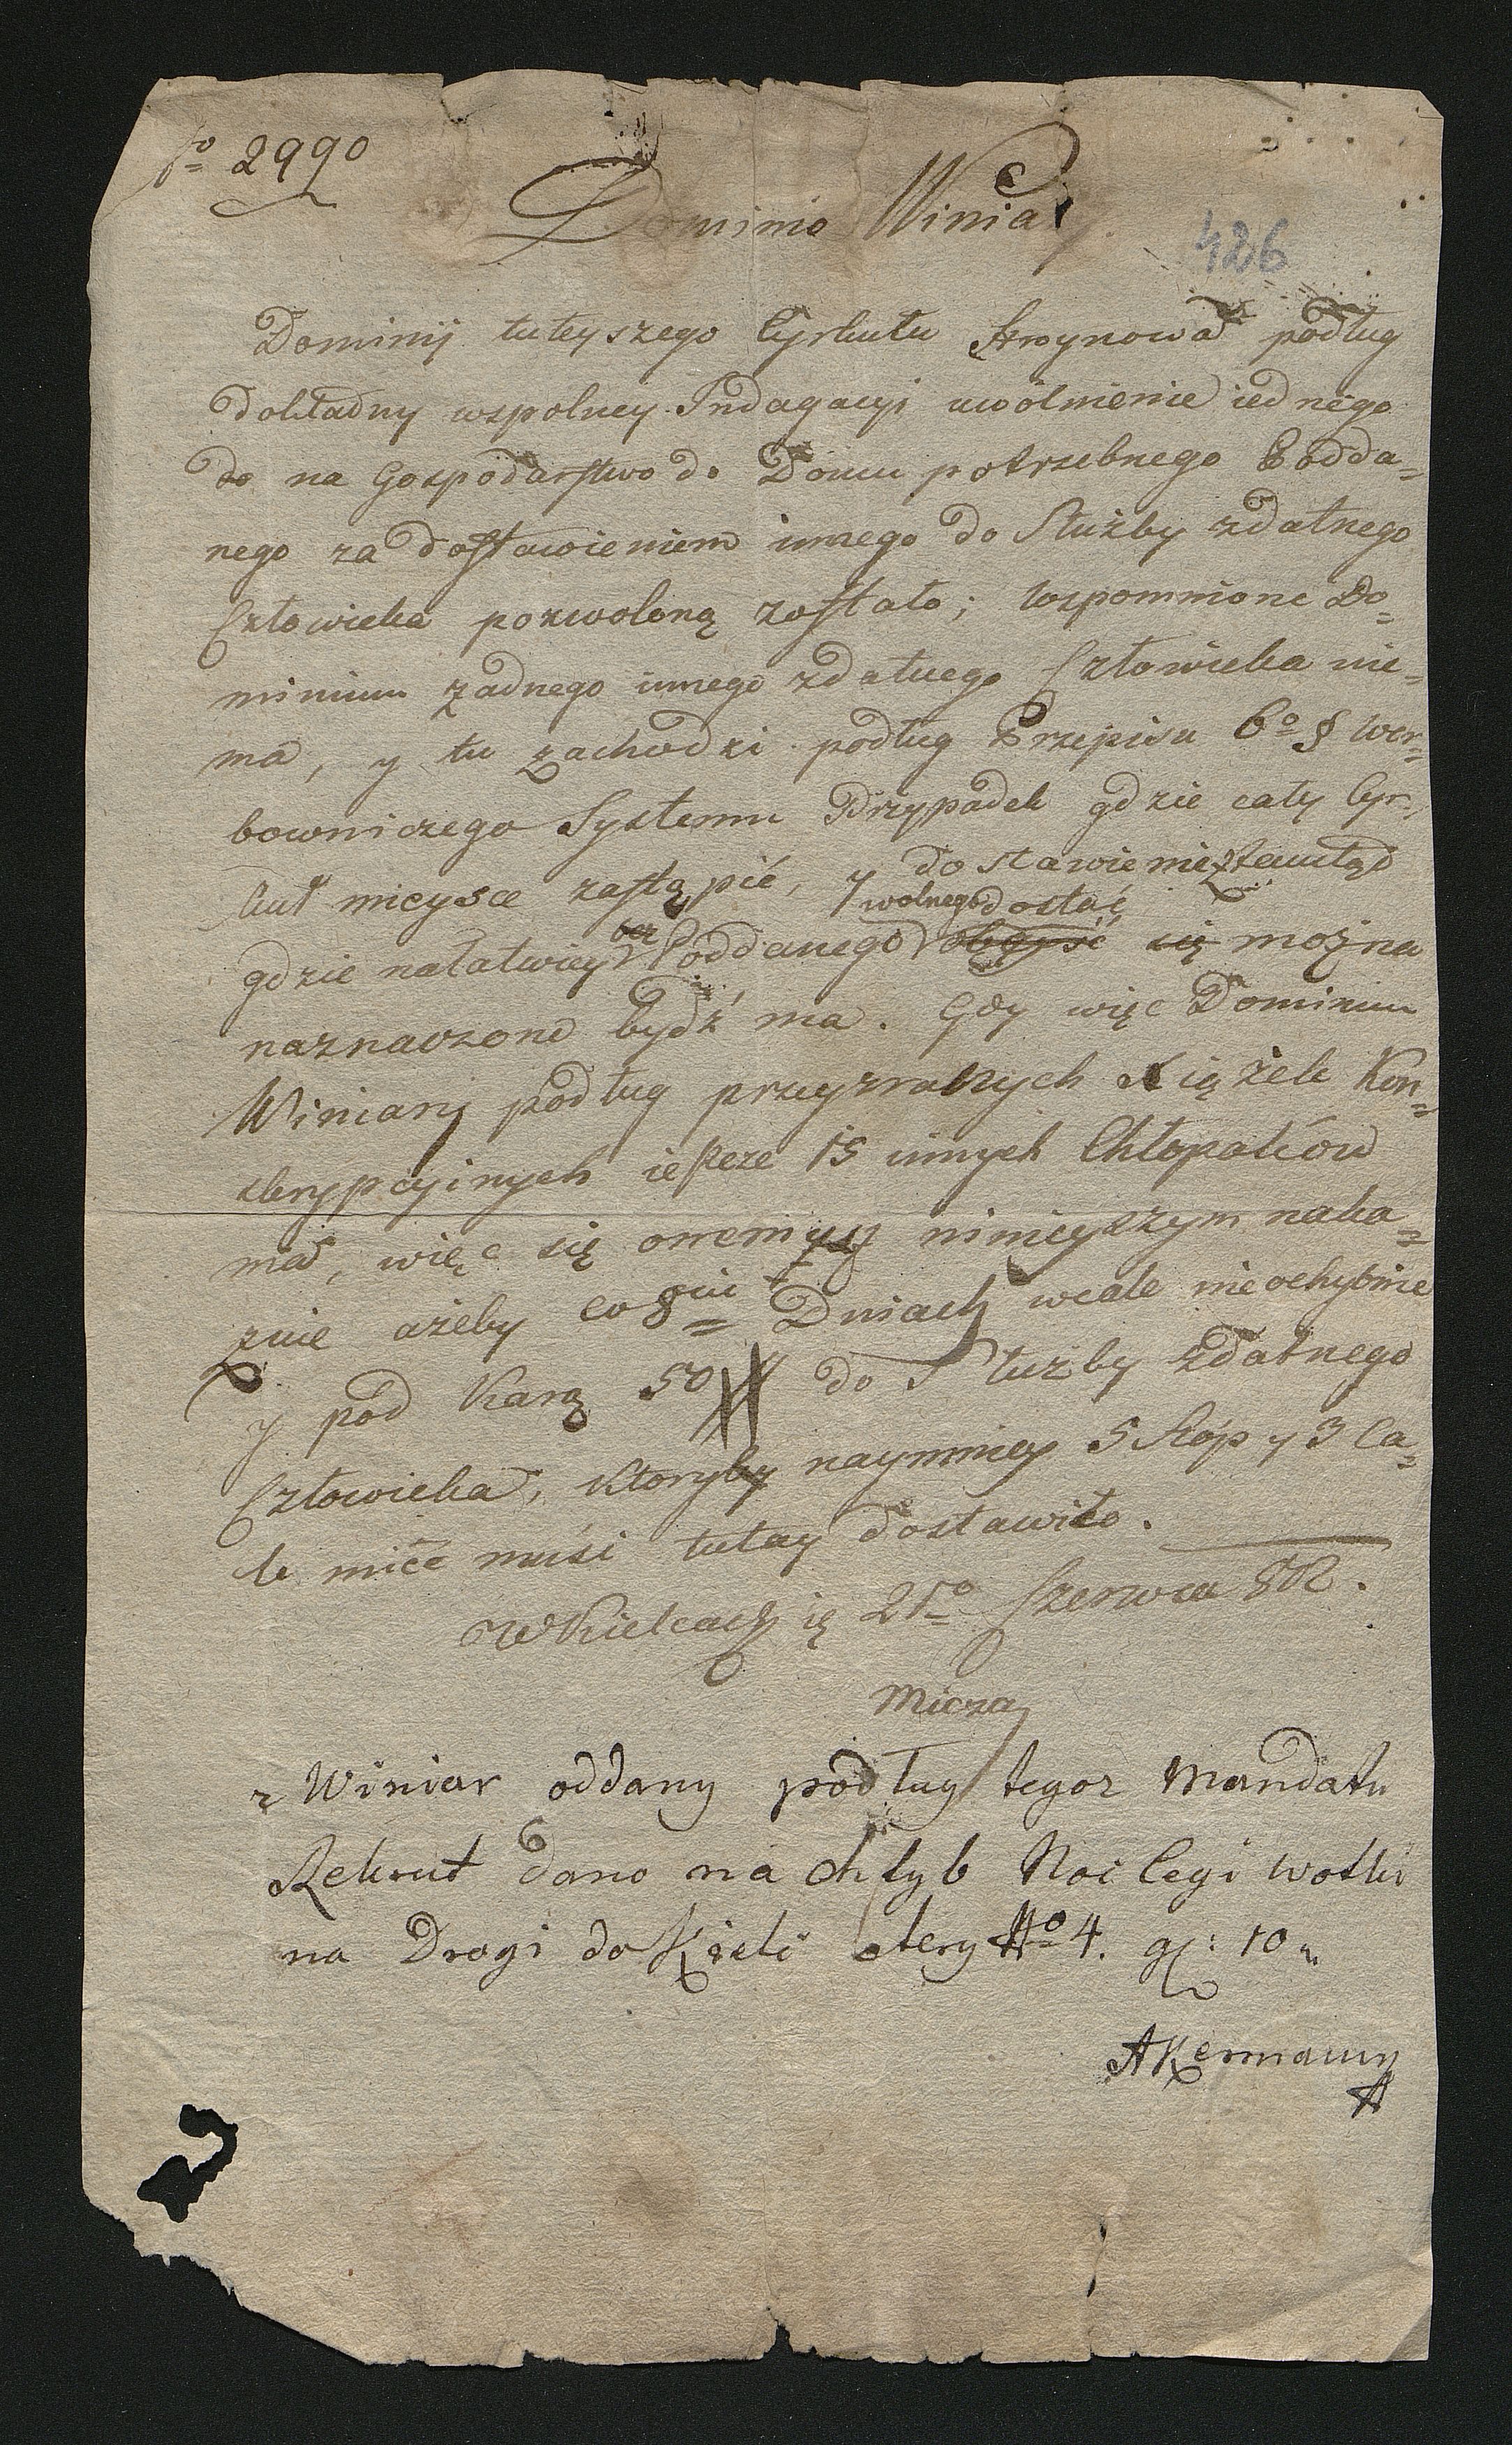 No 2990
Dominio Winiar
426
Dominij tuteyszego Cyrkułu podług
dokładny wspolney Indagacyi uwolnienie iednego
do na Gospodarstwo do Domu potrzebnego Podda=
nego za dostawieniem innego do Służby zdatnego
Człowieka pozwoloną zostało; wspomnione Do=
minium żadnego innego zdatnego Człowieka nie=
ma, y tu zachodzi podług Przepisu 6o § wer=
bowniczego Systemu Przypadek gdzie cały Cyr=
kuł mieysce zastąpić, y dostawienie ztamtąd
wolnego dostać
gdzie nałatwiey Poddanego obeyść się można
naznaczone bydź ma. Gdy więc Dominium
Winiary podług przeyzranych Xiążek Kon=
skrypcyinych ieszcze 15 innych Chłopaków
ma, więc się onemu ninieyszym naka=
zuie ażeby w 8miu Dniach wcale nieochybnie
y pod Karą 50 # do Służby zdatnego
Człowieka, ktoryby naymniey 5 Stop y 3 Ca=
le mieć musi tutay dostawiło.
w Kielcach 21o Czerwca 802.
Micza
z Winiar oddany podług tegoz Mandatu
Rekrut dano na chlyb Noclegi wotki
na Drogi do Kielc No 4. gr: 10
AKermann